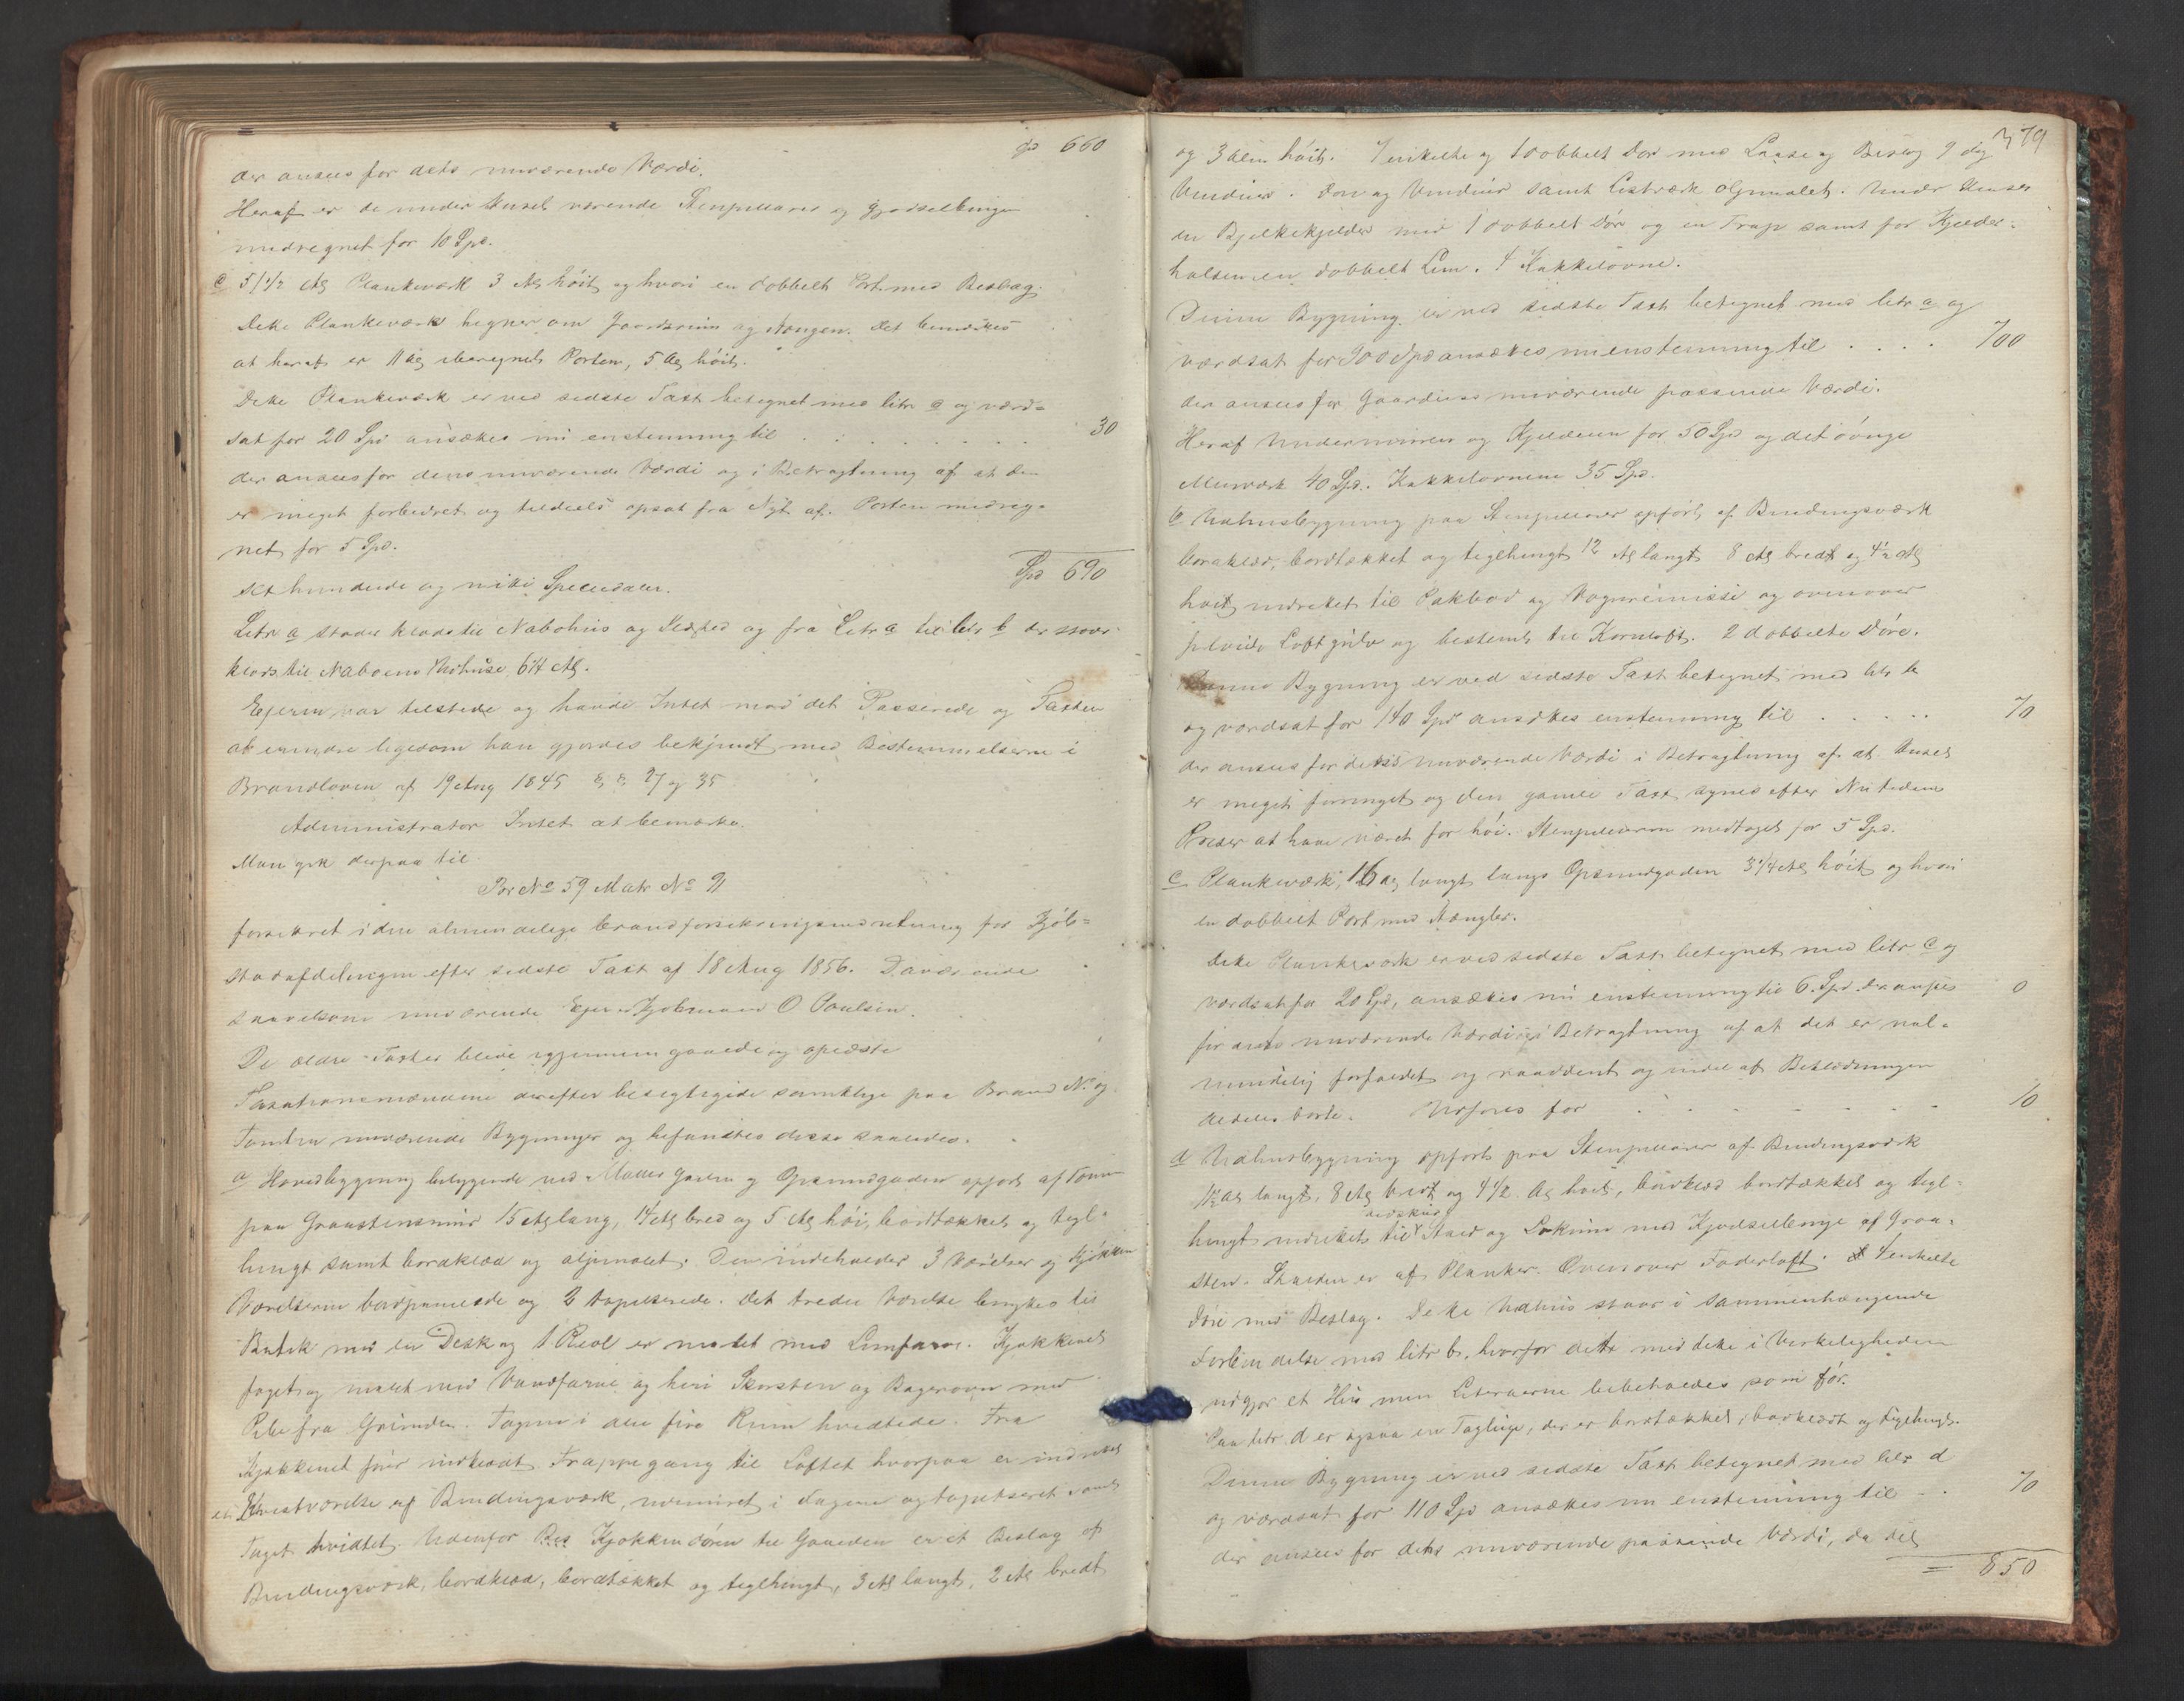 Spd 660
der ansees for dets nuværende Værdi.
Heraf er de under Huset værende Stenpillarer og Gjødselbingen
medregnet for 10 Spd.
c 51 1/2 Al Plankeværk 3 Al høit, og hvori en dobbelt Port med Beslag.
Dette Plankeværk hegner om Gaardsrum og Haugen. Det bemærkes
at heraf er 11 Al iberegnet Porten, 5 Al høit.
Dette Plankeværk er ved sidste Taxt betegnet med litr c og værd-
sat for 20 Spd ansættes nu enstemmig til . . . . . . 30
der ansees for dens nuværende Værdi og i Betragtning af at den
er meget forbedret og tildeels opsat fra Nyt af. Porten medreg-
net for 5 Spd.
Spd 690
Sex hundrede og nitti Speciedaler.
Litr a støder klods til Nabohus og og fra Litr a til litr b der staar
klods til Naboens Udhuse 6 1/4 Al.
Ejeren var tilstede og havde Intet mod det Passerede og Taxten
at erindre ligesom han gjordes bekjendt med Bestemmelserne i
Brandloven af 19 Aug 1845 §§ 27 og 35
Administrator Intet at bemærke.
Man gik derpaa til
Br No 59 Matr No 91
forsikret i den almindelige Brandforsikringsindretning for Kjøb-
stadafdelingen efter sidste Taxt af 18 Aug 1856. Daværende
saavelsom nuværende Ejer Kjøbmand O Paulsen.
De ældre Taxter bleve igjennemgaaede og oplæste
Taxationsmændene derefter besigtigede samtlige paa Brand No og
Tomten nuværende Bygninger og befandtes disse saaledes.
a Hovedbygning beliggende ved gaden og Opsundgaden opført af Tømmer
paa Graastensmur 15 Al lang, 14 Al bred og 5 Al høi, bordtækket og tegl-
hængt samt bordklæd og oljemalet. Den indeholder 3 Værelser og Kjøkken
Værelserne bordpanelede og 2 tapetserede. Det tredie Værelse benyttes til
Butik med en Disk og 1 Reol er malet med Limfarve. Kjøkkenet
faget og malet med Vandfarve og heri Skorsten og Bagerovn med
Pibe fra Grunden. Tagene i alle fire Rum hvidtede. Fra
Kjøkkenet fører indklædt Trappegang til Loftet hvorpaa er indredet
et Kvistværelse af Bindingsværk, udmuret i Fagene og tapetseret samt
Taget hvidtet. Udenfor Kjøkkendøren til Gaarden er et Bislag af
Bindingsværk, bordklæd, bordtækket og teglhængt, 3 Al langt, 2 Al bredt
379
og 3 Alen høit. 7 enkelte og 1 dobbelt Dør med Laase og Beslag 9 fag
Vinduer. Døre og Vinduer samt Listværk oljemalet. Under Huset
en Bjelkekjelder med 1 dobbelt Dør og en Trap samt for Kjelder-
halsen en dobbelt Lem. 4 Kakkelovne.
Denne Bygning er ved sidste Taxt betegnet med litr a og
værdsat for 900 Spd ansættes nu enstemmig til . . . . 700
der ansees for Gaardens nuværende passende Værdi.
Heraf Undermuren og Kjelderen for 50 Spd og det øvrige
Murværk 40 Spd. Kakkelovnene 35 Spd.
b Udhusbygning paa Stenpillarer opført af Bindingsværk
bordklæd, bordtækket og teglhængt 12 Al langt 8 Al bredt og 4 1/2 Al
høit indrettet til Pakbod og Vognremisse og ovenover
Loftgulv og bestemt til Kornloft. 2 dobbelte Døre.
Denne Bygning er ved sidste Taxt betegnet med litr b
og værdsat for 140 Spd ansættes enstemmig til . . . . . 70
der ansees for dets nuværende Værdi i Betragtning af at Huset
er meget forringet og den gamle Taxt synes efter Nutidens
Priser at have været for høi. Stenpillarerne medtaget for 5 Spd.
c Plankeværk, 16 Al langt langs Opsundgaden 3 1/4 Al høit og hvori
en dobbelt Port med Hængsler.
Dette Plankeværk er ved sidste Taxt betegnet med litr c og
værdsat for 20 Spd, ansættes nu enstemmig til 6 Spd der ansees 0
for dets nuværende Værdi i Betragtning af at det er
forfaldet og raaddent og endel af Beklædningen
aldeles borte. Udføres for . . . . . . 10
d Udhusbygning opført paa Stenpillarer af Bindingsværk
11 1/2 Al langt, 8 Al bredt og 4 1/2 Al høit, bordklæd bordtækket og tegl-
hængt indrettet til Vedskur Stald og Lokum med Gjødselbinge af Graa-
sten. Stalden er af Planker. Ovenover Foderloft. 4 enkelte
Døre med Beslag. Dette Udhus staar i sammenhængende
Forbindelse med litr b, hvorfor dette med dette i Virkeligheden
udgjør et Hus men Literaerne bibeholdes som før.
Paa litr d er ogsaa en Tagluge, der er bordtækket, bordklædt og teglhængt.
Denne Bygning er ved sidste Taxt betegnet med litr d
og værdsat for 110 Spd ansættes nu enstemmig til . . 70
der ansees for dets nuværende passende Værdi, da det
= 850